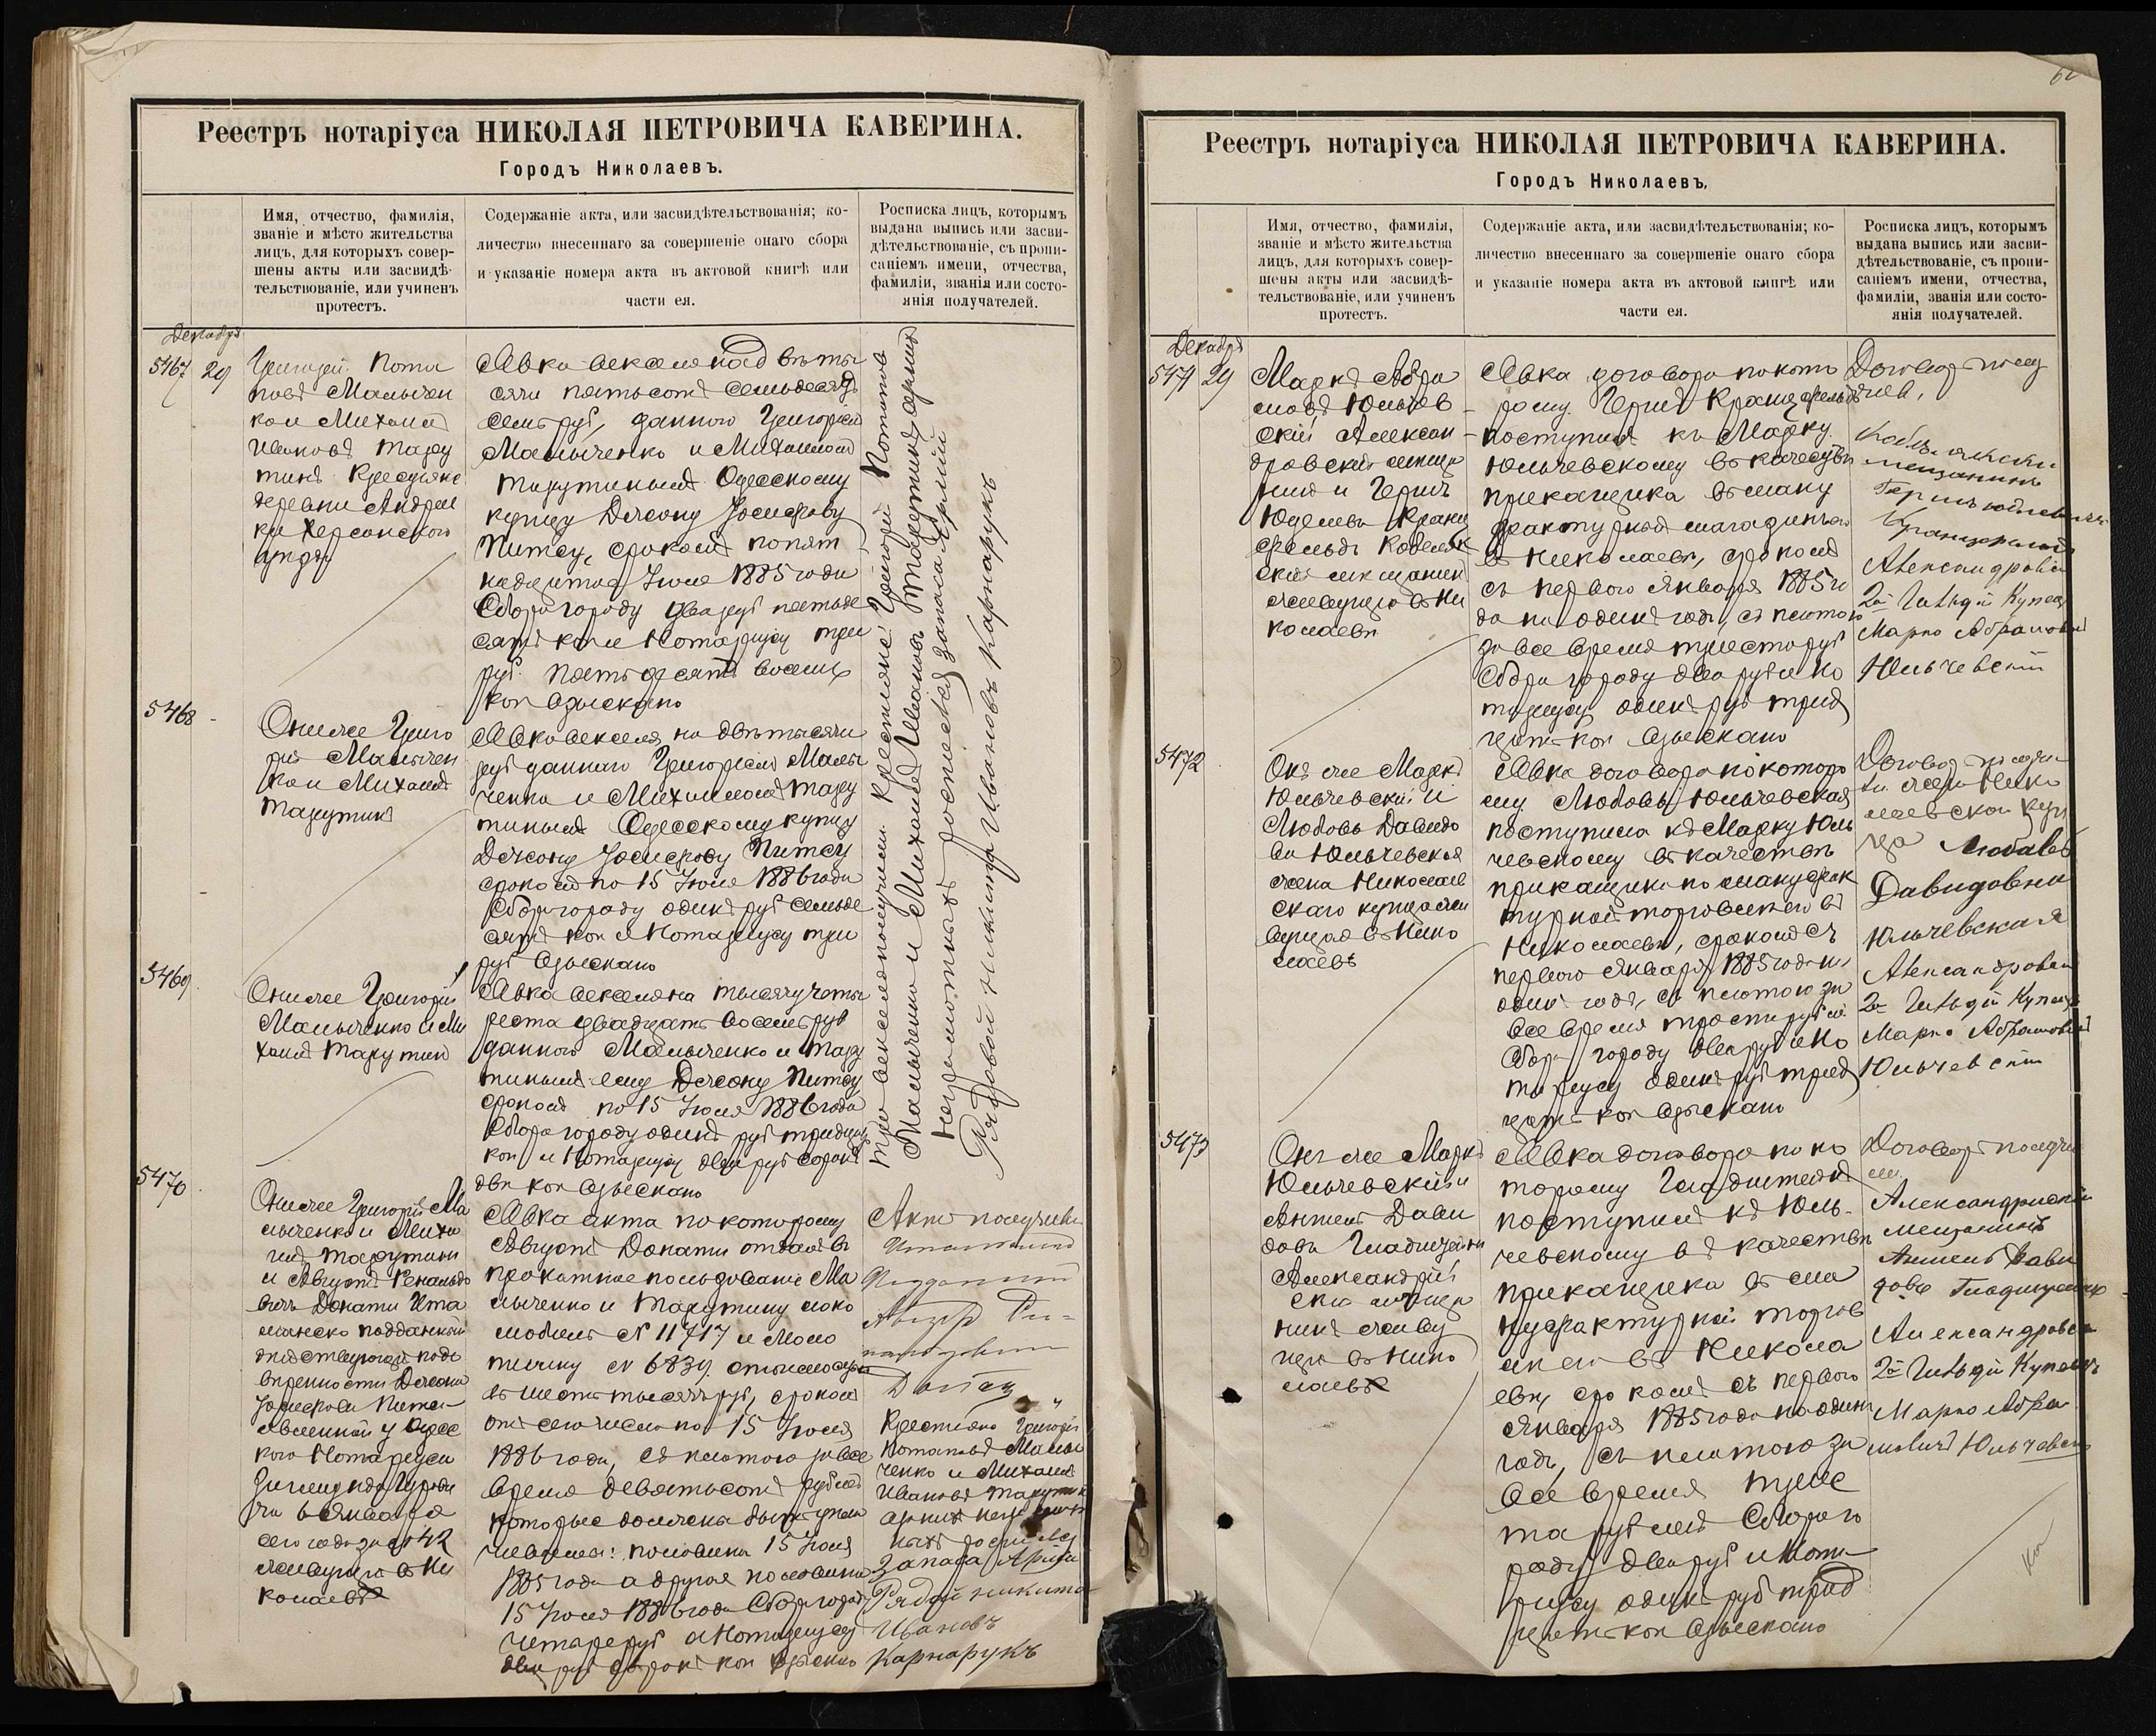 Реестръ нотаріуса НИКОЛАЯ ПЕТРОВИЧА КАВЕРИНА.
Городъ Николаевъ.
Имя, отчество, фамилія,
званіе и мѣсто жительства
лицъ, для которыхъ совер-
шены акты или засвидѣ-
тельствованіе, или учиненъ
протестъ.
Содержаніе акта, или засвидѣтельствованія; ко-
личество внесеннаго за совершеніе онаго сбора
и указаніе номера акта въ актовой книгѣ или
части ея.
Росписка лицъ, которымъ
выдана выпись или засви-
дѣтельствованіе, съ пропи-
саніемъ имени, отчества,
фамиліи, званія или состо-
янія получателей.
Декабря
5467 29
Григорій Пота
повъ Малычен
ко и Михаилъ
Ивановъ Тару
тинъ Крестьяне
деревни Андрее
вки Херсонского
уѣзда
Явка векселя на двѣ ты
сячи пятьсотъ семьдесятъ
семь руб, данного Григоріемъ
Малыченко и Михаиломъ
Тарутинымъ Одесскому
купцу Джону Іосифову
Питсу, срокомъ по пят
надцатое Іюля 1885 года
Сбора городу два руб пятьде
сятъ коп и Нотаріусу три
руб. пятьдесятъ восемь
коп взыскано
5468
Они же Григо
рій Малычен
ко и Михаилъ
Тарутинъ
Явка векселя на двѣ тысячи
руб даннаго Григоріемъ Малы
ченко и Михаиломъ Тару
тинымъ Одесскому купцу
Джону Іосифову Питсу
срокомъ по 15 Іюля 1886 года
Сбора городу одинъ руб семьде
сятъ коп и Нотаріусу три
руб взыскано
5469
Они же Григорій
Малыченко и Ми
хаилъ Тарутинъ
Явка векселя на тысячу четы
реста двадцать восемь руб
данного Малыченко и Тару
тинымъ ему Джону Питсу
срокомъ по 15 Іюля 1886 года
Сбора городу одинъ руб тридцать
коп и Нотаріусу два руб сорокъ
двѣ коп взыскано
Три векселя получили Крестьяне Григорій Потаповъ
Малыченко и Михаилъ Ивановъ Тарутинъ а за нихъ
неграмотныхъ росписался запаса Арміи
Рядовой Никита Ивановъ Карнарукъ
5470
Они же Григорій Ма
лыченко и Миха
илъ Тарутинъ
и Августъ Ренальдо
вичъ Донати Ита
льянско подданный
дѣйствующій по до
вѣренности Джона
Іосифова Питса
явленной у Одес
кого Нотаріуса
Гурови
ча 6 Января
сего года за № 42
живущіе въ Ни
колаевѣ
Явка акта по которому
Августъ Донати отдалъ въ
прокатное пользованіе Ма
лыченко и Тарутину локо
мобиль № 11717 и Моло
тилку № 6839 стоимостью
въ шесть тысячъ руб, срокомъ
отъ сего числа по 15 Іюля
1886 года, съ платою за все
время девятьсотъ рублей
которые должны быть упла
чиваемы: половина 15 Іюля
1885 года а другая половина
15 Іюля 1886 года Сбора городу
четыре руб а Нотаріусу
два руб сорокъ коп взыскано
Актъ получили
Итальянскій
Подданный
Августъ Ри-
нальдовичъ
Донати
Крестьяне Григорій
Потаповъ Малы
ченко и Михаилъ
Ивановъ Тарутинъ
а за нихъ неграмот
ныхъ росписался
запаса Арміи
Рядовой Никита
Ивановъ
Карнарукъ
Реестръ нотаріуса НИКОЛАЯ ПЕТРОВИЧА КАВЕРИНА.
Городъ Николаевъ,
Имя, отчество, фамилія,
званіе и мѣсто жительства
лицъ, для которыхъ совер-
шены акты или засвидѣ-
тельствованіе, или учиненъ
протестъ.
Содержаніе акта, или засвидѣтельствованія; ко-
личество внесеннаго за совершеніе онаго сбора
и указаніе номера акта въ актовой книгѣ или
части ея.
Росписка лицъ, которымъ
выдана выпись или засви-
дѣтельствованіе, съ пропи-
саніемъ имени, отчества,
фамиліи, званія или состо-
янія получателей.
Декабря
5471 29
Марко Абра
мовъ Юльчев
скій Алексан
дровскій мѣща
нинъ и Гершъ
Юделевъ Кранц
фельдъ Кобеляк
скій мѣщанинъ
живущіе въ Ни
колаевѣ
Явка договора по кото
рому Гершъ Кранцфельдъ
поступилъ къ Марку
Юльчевскому въ качествѣ
приказщика въ ману
фактурный магазинъ его
въ Николаевѣ, срокомъ
съ первого Января 1885 го
да на одинъ годъ, съ платою
за все время триста руб
Сбора городу два руб и Но
таріусу одинъ руб трид
цать коп взыскано
Договоръ полу
чили,
Кобелякскій
мещанинъ
Гершъ Юделевичъ
Кранцфельдъ
Александровскій
2й Гильдіи Купецъ
Марко Абрамовичъ
Юльчевскій
5472
Онъ же Марко
Юльчевскій и
Любовь Давидо
ва Юльчевская
жена Николаев
скаго купца жи
вущая въ Нико
лаевѣ
Явка договора по которо
му Любовь Юльчевская
поступила къ Марку Юль
чевскому въ качествѣ
приказщика по мануфак
турной торговлѣ его въ
Николаевѣ, срокомъ съ
первого Января 1885 года на
одинъ годъ, съ платою за
все время триста рублей
Сбора городу два руб и Но
таріусу одинъ руб трид
цать коп взыскано
Договоръ получи
ли жена Нико
лаевской Куп
ца Любовь
Давидовна
Юльчевская
Александровскій
2й Гильдіи Купецъ
Марко Абрамовичъ
Юльчевскій
5473
Онъ же Марко
Юльчевскій и
Аншель Дави
довъ Гладштейнъ
Александрій
скій мѣща
нинъ живу
щіе въ Нико
лаевѣ
Явка договора по ко
торому Гладштейнъ
поступилъ къ Юль-
чевскому въ качествѣ
приказщика въ ма
нуфактурной торгов
лѣ его въ Никола
евѣ, срокомъ съ первого
Января 1885 года на одинъ
годъ, съ платою за
все время три
ста рублей Сбора го
роду два руб и Нота
ріусу одинъ руб трид
цать коп взыскано
Договоръ получи
ли
Александрійскій
мещанинъ
Аншель Дави
довъ
Александровскій
2й Гильдіи Купецъ
Марко Абра
мовичъ Юльчевскій